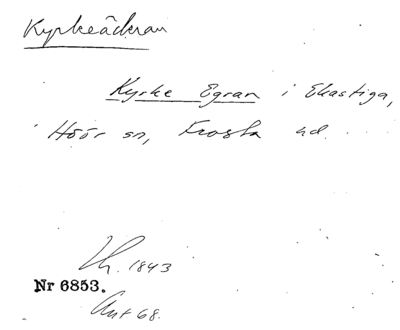 Kyrkeäckran
Kyrke Egran i Ekastiga,
i Höör sn, Frosta hd.
Th. 1843
Nr 6853.
Ant 68.